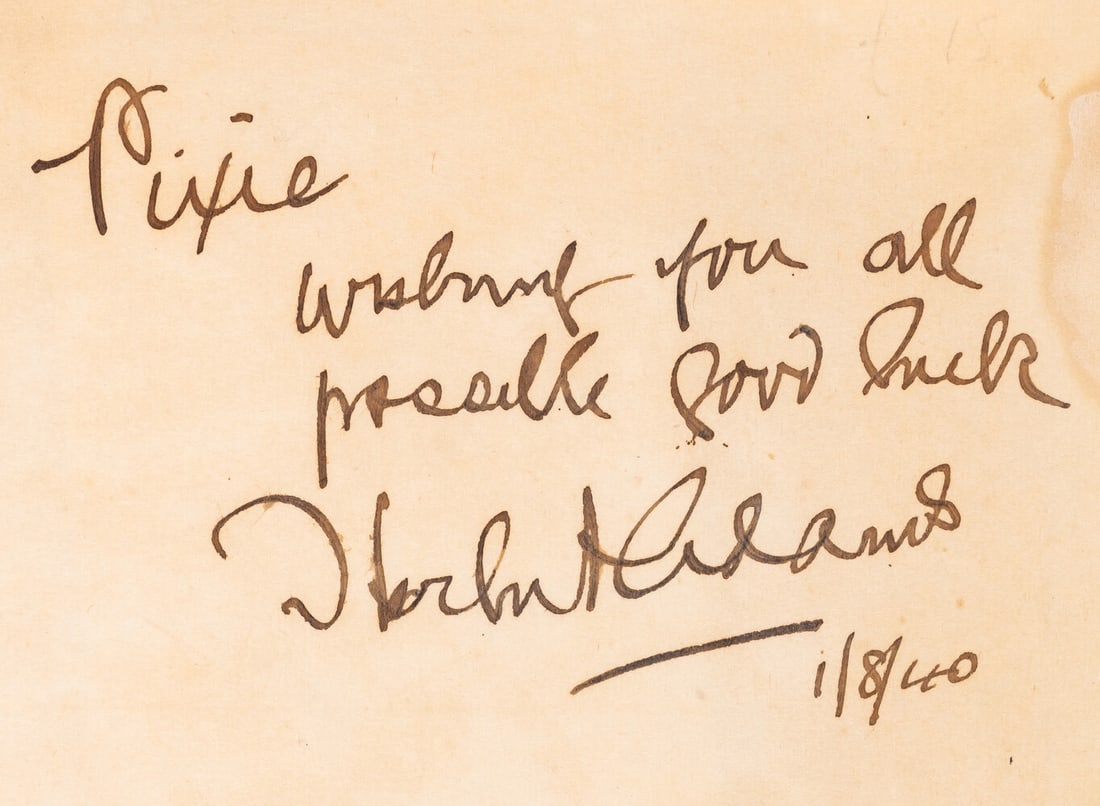 Pixie
wishing you all
possible good luck
Herbert Adams
1/8/40